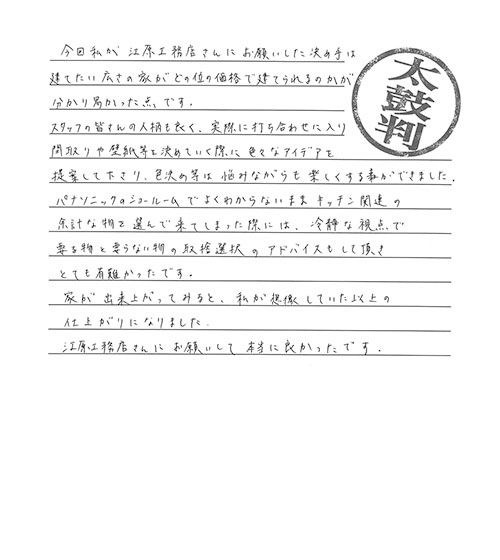 今回私が江原工務店さんにお願いした決め手は
建てたい広さの家がどの位の価格で建てられるのかが
分かり易かった点です。
スタッフの皆さんの人柄も良く、実際に打ち合わせに入り
間取りや壁紙等を決めていく際に色々なアイデアを
提案して下さり、色決め等は悩みながらも楽しくする事ができました。
パナソニックのショールームでよくわからないままキッチン関連の
余計な物を選んで来てしまった際には、冷静な視点で
要る物と要らない物の取捨選択のアドバイスもして頂き
とても有難かったです。
家が出来上がってみると、私が想像していた以上の
仕上がりになりました。
江原工務店さんにお願いして本当に良かったです。
太鼓判